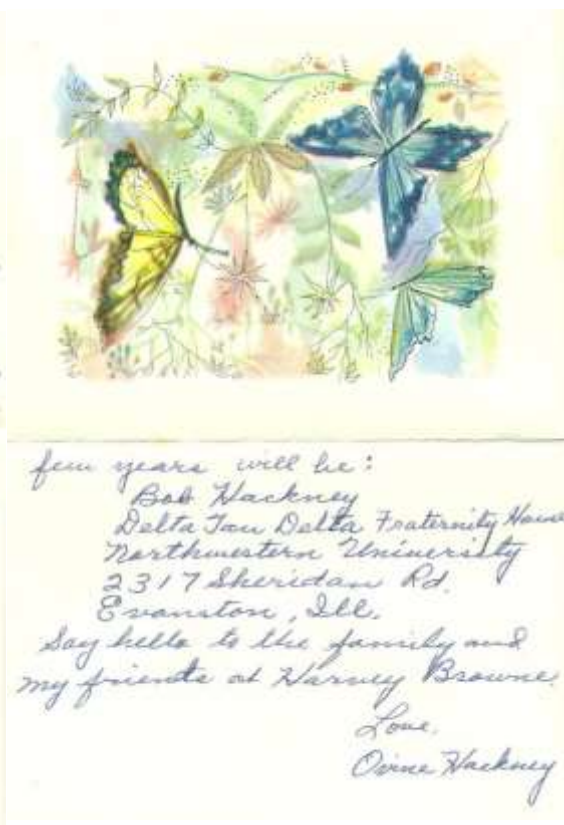 few years will be:
Bob Hackney
Delta Tau Delta Fraternity House
Northwestern University
2317 Sheridan Rd.
Evanston, Ill.
Say hello to the family and
my friends at Harvey Browne.
Love,
Ovine Hackney